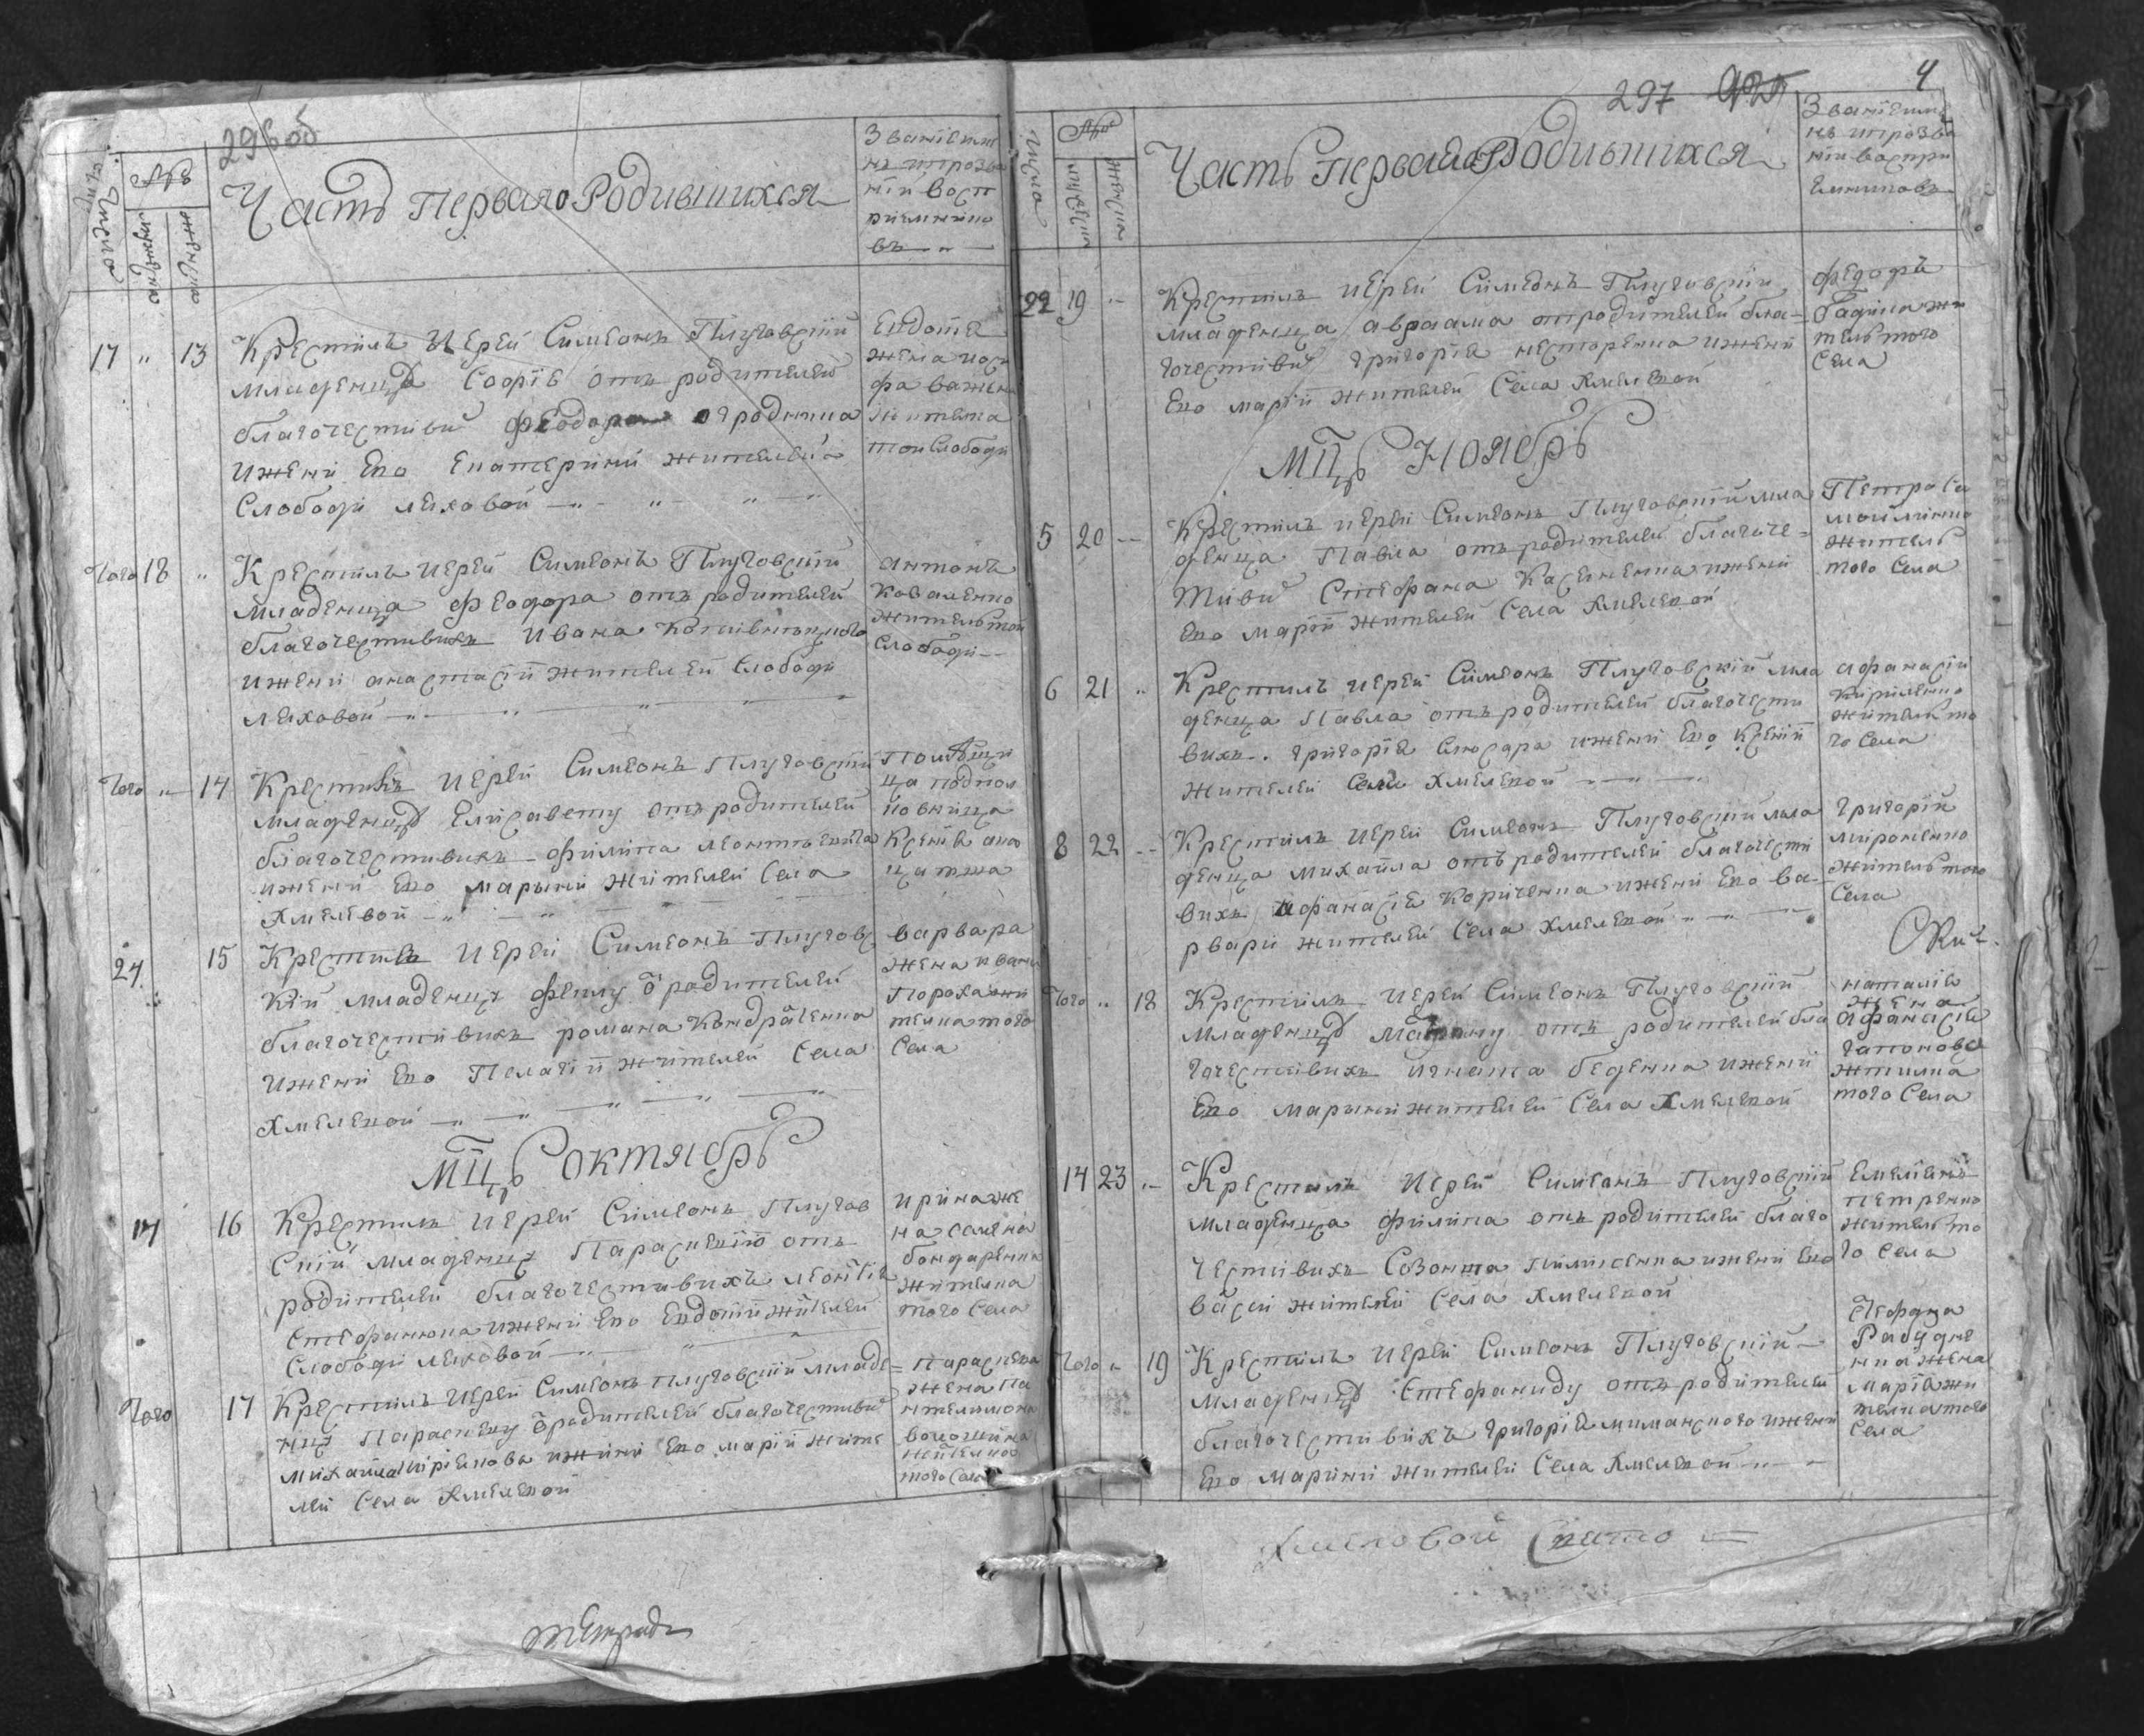 296 об
Числа
мужеска
женска
Часть первая о Родившихся
Звание име
на и прозва
нїи восп
рїемнико
въ
17 " 13 Крестилъ Иерей Симеонъ Плуговскїй
младенца Софїю отъ родителей
благочестиви Феодора огродника
и жени Его Екатерини жителей
Слободи леховой
жена иоси
фа важен
жителка
той Слободи
Того 18 " Крестилъ иерей Симеонъ Плуговскїй
младенца Феодора отъ родителей
благочестивихъ Ивана
и жени анастасїи жителей Слободи
леховой
антонъ
коваленко
житель той
Слободи
Того " 14 Крестилъ иерей Симеонъ Плуговскїй
младенца Елисавету отъ родителей
благочестивихъ филипа
и жени Его марыни жителей Села
Хмелевой
помѣщи
ца подпол
ковница
24 15 Крестилъ Иерей Симеонъ Плуговс
кїй младенца феклу ѿ родителей
благочестивихъ романа Кондратенка
и жени Его Пелагїи жителей Села
Хмелевой
варвара
жена ивана
телка того
Села
МЦЪ ОКТЯБРЬ
14 16 Крестилъ Иерей Симеонъ Плугов
скїй младенца Параскевїю отъ
родителей благочестивихъ леонтїя
Стефанюка и жени Его Евдокїи жителей
Слободи леховой
ирина же
на семена
бондаренка
жителка
того Села
Того 17 Крестилъ Иерей Симеонъ плуговскїй младе=
нца Параскеву ѿ родителей благочестиви
михайла и жени Его марїи жите
лей Села Хмелевой
параскева
жена па
нтелимона
жителка
того Села
тетрадь
297
4
Числа
мужеска
женска
Часть первая о Родившихся
Звание име
нъ и прозва
нїи воспри
емниковъ
22 19 " Крестилъ иерей Симеонъ Плуговскїй
младенца авраама от родителей бла-
гочестиви григорїя несторенка и жени
Его марїи жителей Села Хмелевой
федоръ
Гадика жи
тель того
Села
МЦЪ НОЯБРЬ
5 20 " Крестилъ иерей Симеонъ Плуговскїй мла
денца Павла отъ родителей благоче=
стиви Стефана Касяненка и жени
Его марїи жителей Села Хмелевой
Петро Са
мойленко
житель
того Села
6 21 " Крестилъ иерей Симеонъ Плуговскїй мла
денца Павла отъ родителей благочести
вихъ григорїя Слюсара и жени Его Ксенїи
жителей Села Хмелевой
афанасїй
кириленко
житель то
го Села
8 22 " Крестилъ иерей Симеонъ Плуговскїй мла
денца михайла отъ родителей благочести
вихъ афанасїя Кориченка и жени Его ва-
рвари жителей Села Хмелевой
григорїй
мироненко
житель того
Села
Того " 18 Крестилъ Иерей Симеонъ Плуговскїй
младенца отъ родителей бла
гочестивихъ игната беденка и жени
Его марыни жителей Села Хмелевой
наталїя
жена
афанасїя
гапонова
жителка
того Села
14 23 " Крестилъ Иерей Симеонъ Плуговскїй
младенца филипа отъ родителей благо
честивихъ Созонта Пилипенка и жени Его
васси жителей Села Хмелевой
Емелїянъ
петренко
житель то
го Села
Того " 19 Крестилъ Иерей Симеонъ Плуговскїй
младенца Стефаниду отъ родителей
благочестивихъ григорїя и жени
Его марини жителей Села Хмелевой
жена
марїя жи
телка того
Села
Хмеловой